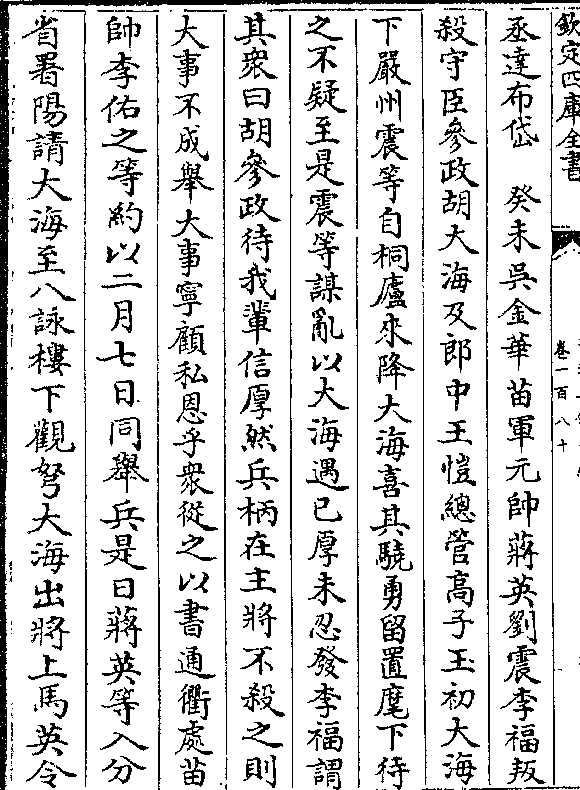 欽定四庫全書
卷一百八十
丞達布岱　癸未吳金華苗軍元帥蔣英劉震李福叛
殺守臣參政胡大海及郎中王愷總管高子玉初大海
下嚴州震等自桐廬來降大海喜其驍勇留置麾下待
之不疑至是震等謀亂以大海遇已厚未忍發李福謂
其衆曰胡參政待我輩信厚然兵柄在主將不殺之則
大事不成舉大事寧顧私恩乎衆從之以書通衢處苗
帥李佑之等約以二月七日同舉兵是日蔣英等入分
省署陽請大海至八詠樓下觀弩大海出將上馬英令